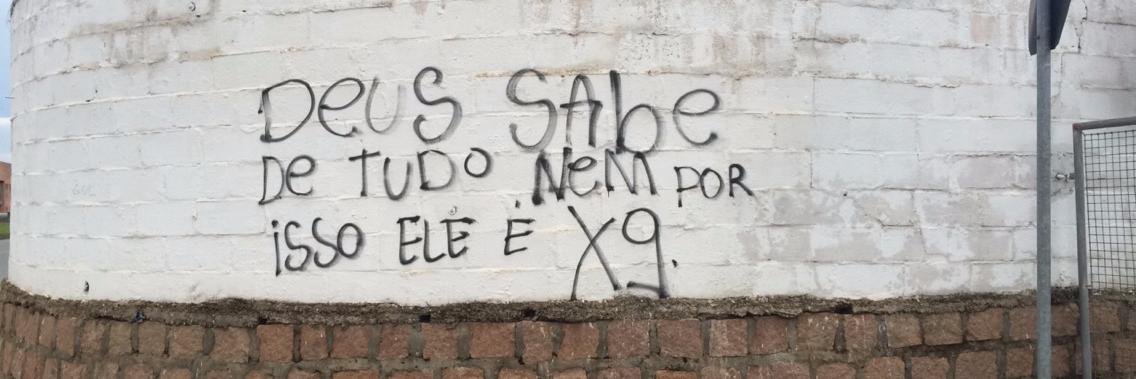 DeUS SAbe
De TUDO NeM POR
iSSO ELE É X9.